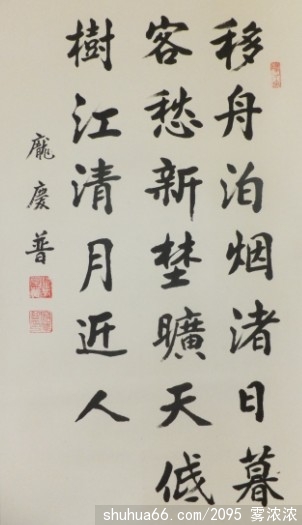 移舟泊烟渚日暮
客愁新埜曠天低
樹江清月近人
龐慶普
shuhua66.com/2095 雾浓浓